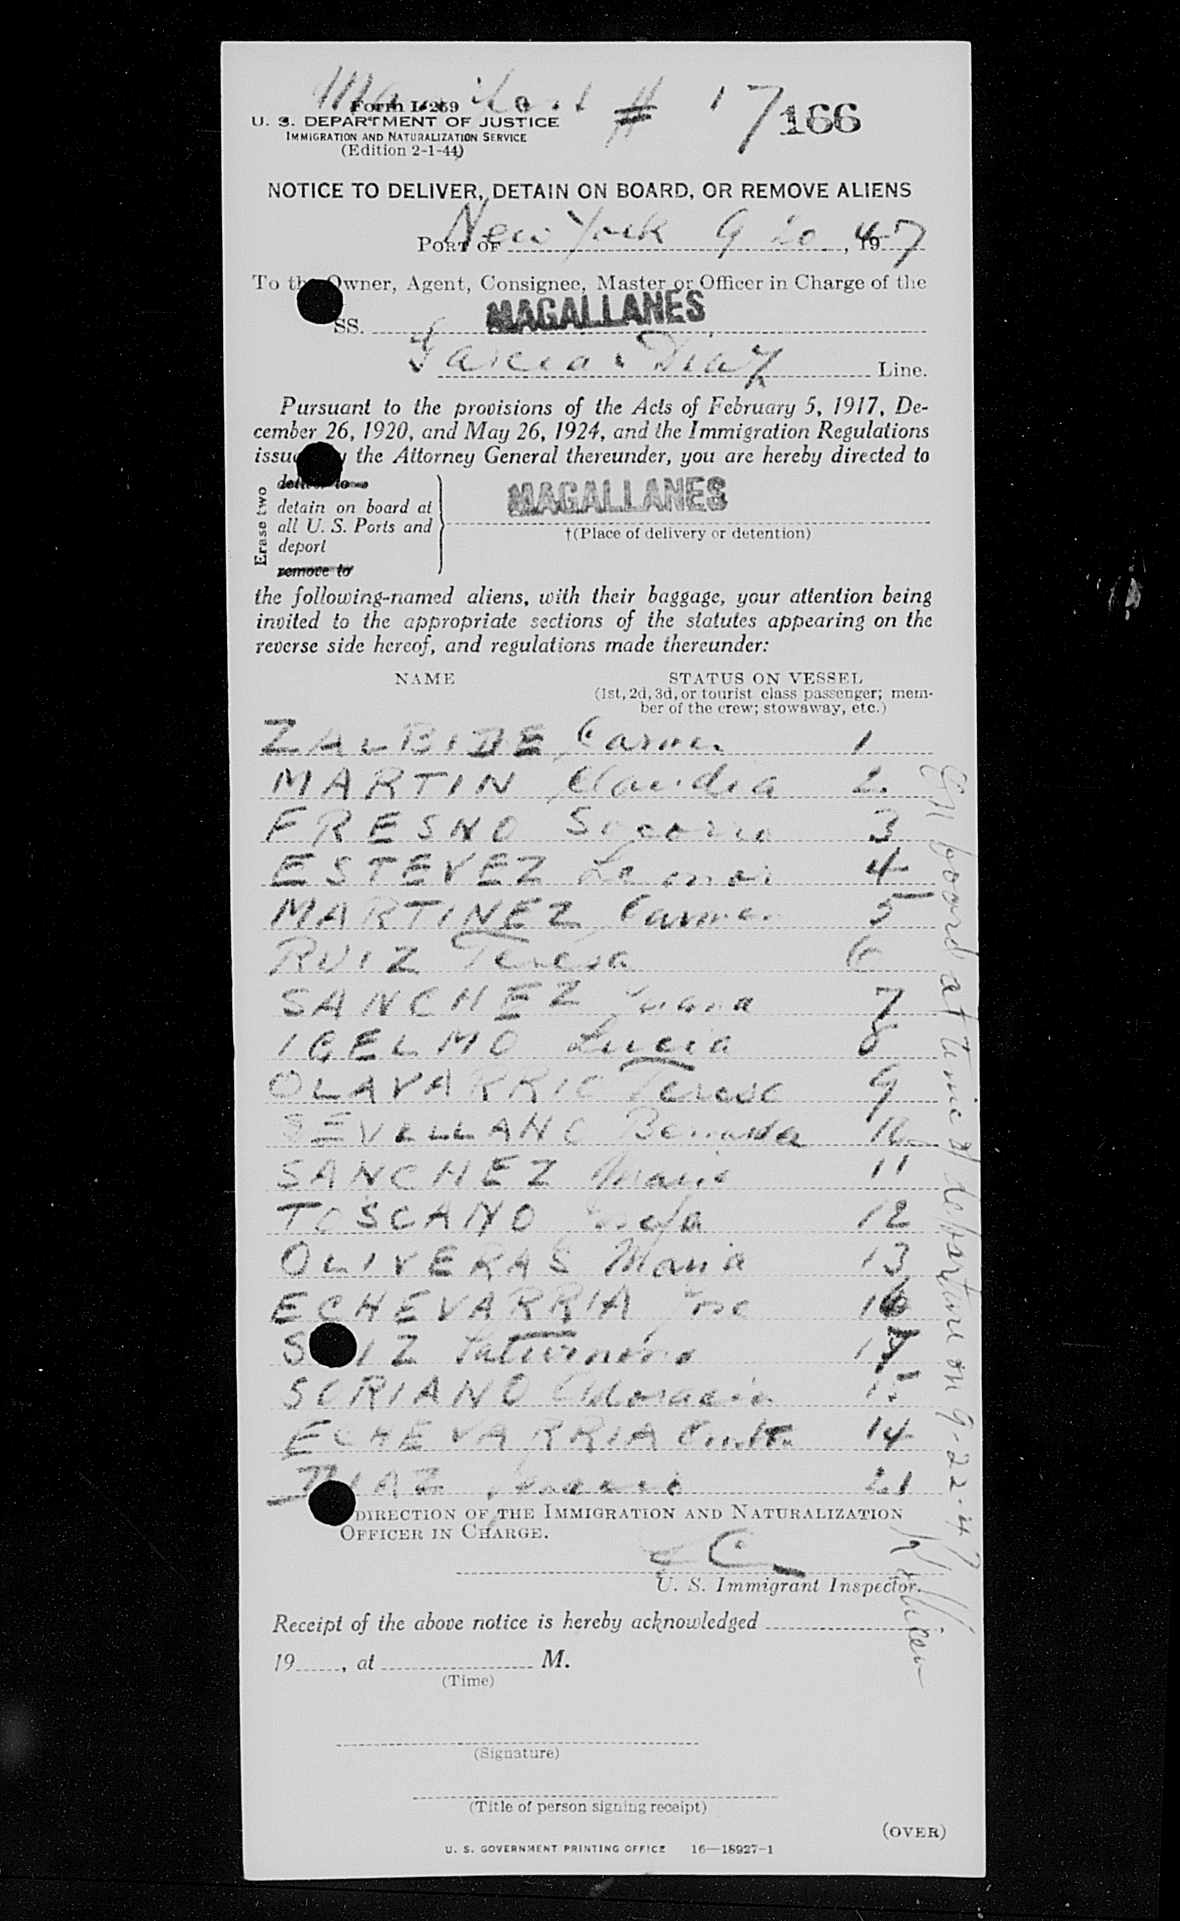 # 17 166
Form I-259
U. S. DEPARTMENT OF JUSTICE
IMMIGRATION AND NATURALIZATION SERVICE
(Edition 2-1-44)
NOTICE TO DELIVER, DETAIN ON BOARD, OR REMOVE ALIENS
PORT OF New York 9 20, 1947
To the Owner, Agent, Consignee, Master or Officer in Charge of the
SS. MAGALLANES
Garcia & Diaz Line.
Pursuant to the provisions of the Acts of February 5, 1917, De-
cember 26, 1920, and May 26, 1924, and the Immigration Regulations
issued by the Attorney General thereunder, you are hereby directed to
Erase two
deliver to
detain on board at
all U. S. Ports and
deport
remove to
MAGALLANES
†(Place of delivery or detention)
the following-named aliens, with their baggage, your attention being
invited to the appropriate sections of the statutes appearing on the
reverse side hereof, and regulations made thereunder:
NAME STATUS ON VESSEL
(1st, 2d, 3d, or tourist class passenger; mem-
ber of the crew; stowaway, etc.)
ZALBIDE Carmen 1
MARTIN Claudia 2
FRESNO Socorro 3
ESTEVEZ Leonor 4
MARTINEZ Carmen 5
RUIZ Teresa 6
SANCHEZ Juana 7
IGELMO Lucia 8
OLAVARRIO Teresa 9
SEVELLANO 10
SANCHEZ Maria 11
TOSCANO 12
OLIVERAS Maria 13
ECHEVARRIA Jose 16
Saturnino 17
SORIANO Adoracion 15
ECHEVARRIA 14
DIAZ 21
DIRECTION OF THE IMMIGRATION AND NATURALIZATION
OFFICER IN CHARGE.
U. S. Immigrant Inspector.
Receipt of the above notice is hereby acknowledged
19, at M.
(Time)
(Signature)
(Title of person signing receipt)
(OVER)
U. S. GOVERNMENT PRINTING OFFICE 16—18927-1
board at time of departure on 9-22-47